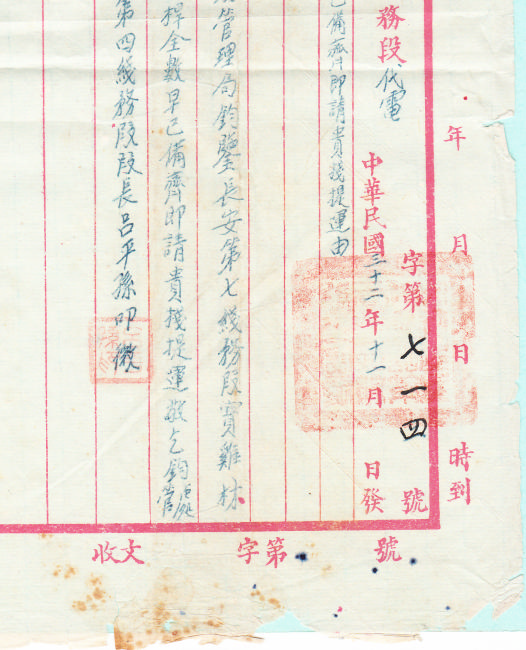 年　月　日　時到
字第七一四號
中華民國三十二年十一月　日發
務段代電
已備齊即請貴棧提運由
管理局鈞鑒長安第七綫務段寶雞材
桿全數早已備齊即請貴棧提運敬乞鈞
第四綫務段段長呂平孫叩
收文　字第　號